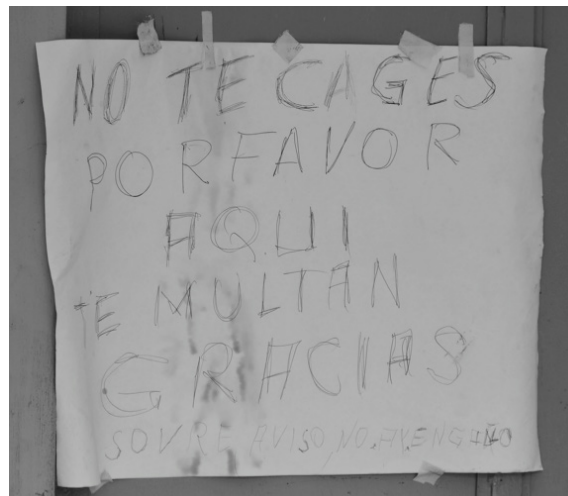 NO TE CAGES
POR FAVOR
AQUI
TE MULTAN
GRACIAS
SOVRE AVISO, NO. AY. ENGAÑO